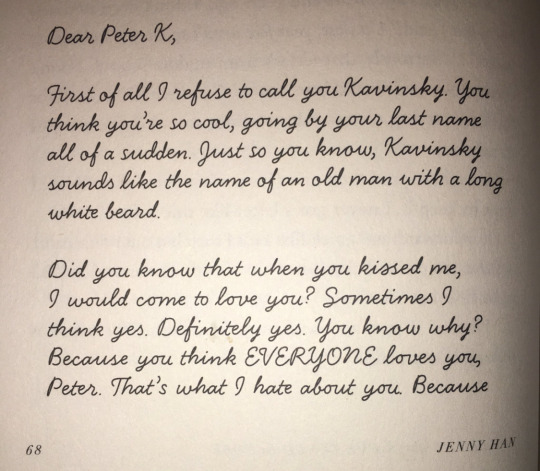 Dear Peter K,
First of all I refuse to call you Kavinsky. You
think you're so cool, going by your last name
all of a sudden. Just so you know, Kavinsky
sounds like the name of an old man with a long
white beard.
Did you know that when you kissed me,
I would come to love you? Sometimes I
think yes. Definitely yes. You know why?
Because you think EVERYONE loves you,
Peter. That's what I hate about you. Because
68 JENNY HAN